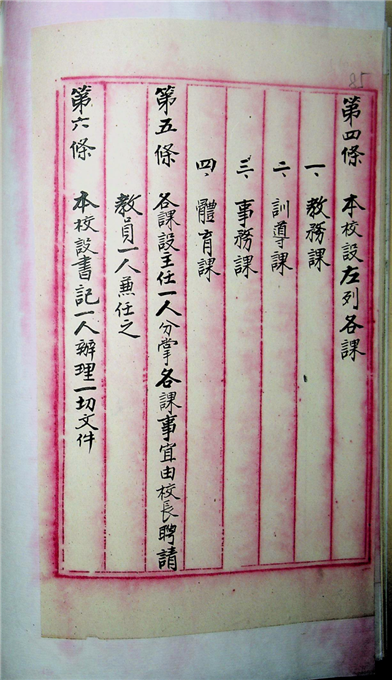 第四條　本校設左列各課
一、教務課
二、訓導課
三、事務課
四、體育課
第五條　各課設主任一人分掌各課事宜由校長聘請
教員一人兼任之
第六條　本校設書記一人辦理一切文件